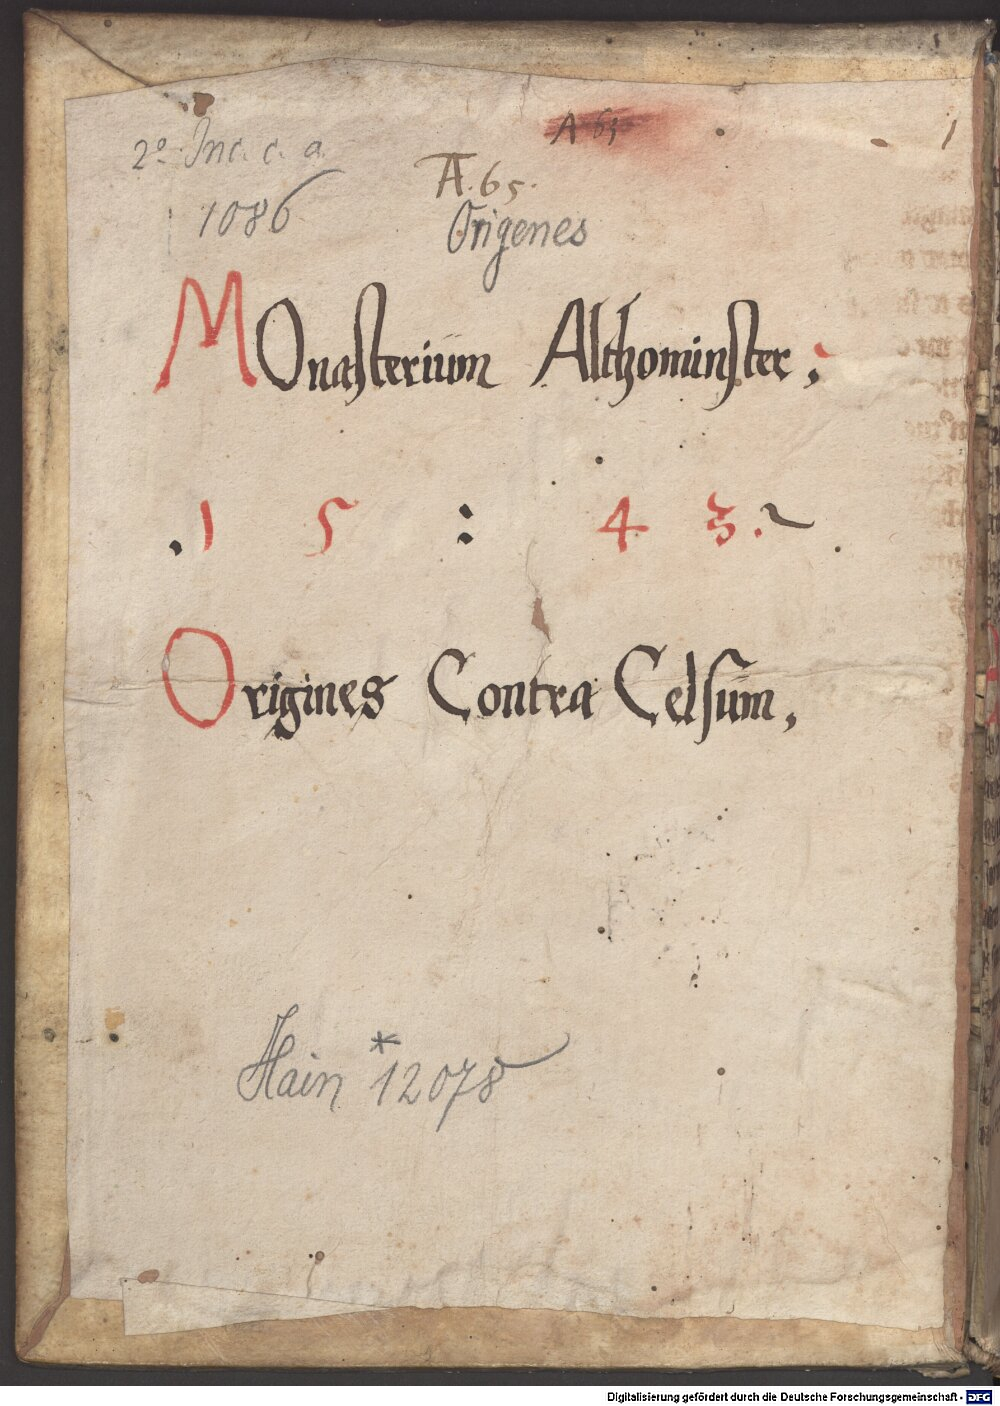 2° Inc. c. a.
1086
A 65
A. 65.
Origenes
1
MOnasterium Althominster;
.1 5 : 4 3.~
Origines Contra Celsum,
Hain *12078
Digitalisierung gefördert durch die Deutsche Forschungsgemeinschaft - DFG